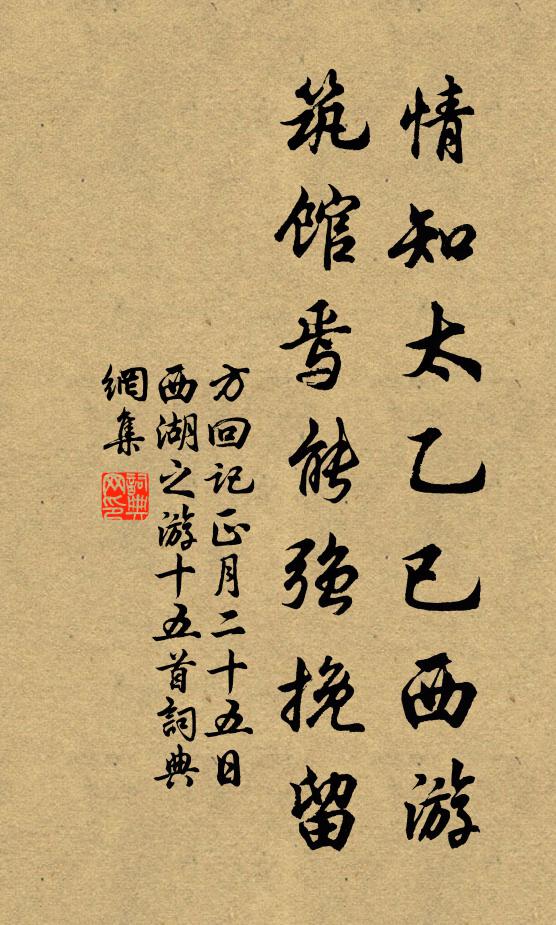 情知太乙已西游
筑館焉能強挽留
方回记正月二十五日
西湖之游十五首詞典
網集
詞典
网印